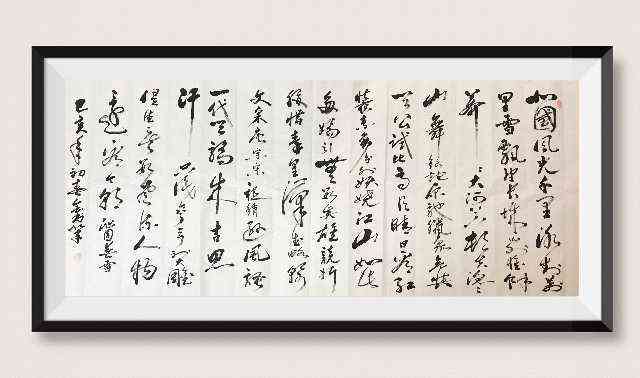 北國風光千里冰封萬
里雪飄望長城內外惟余
莽莽大河上下頓失滔滔
山舞銀蛇原馳蠟象欲與
天公試比高須晴日看紅
裝素裹分外妖嬈江山如此
多嬌引無數英雄競折
腰惜秦皇漢武略輸
文采唐宗宋祖稍遜風騷
一代天驕成吉思
汗只識彎弓射大雕
俱往矣數風流人物
還看今朝
己亥年初春